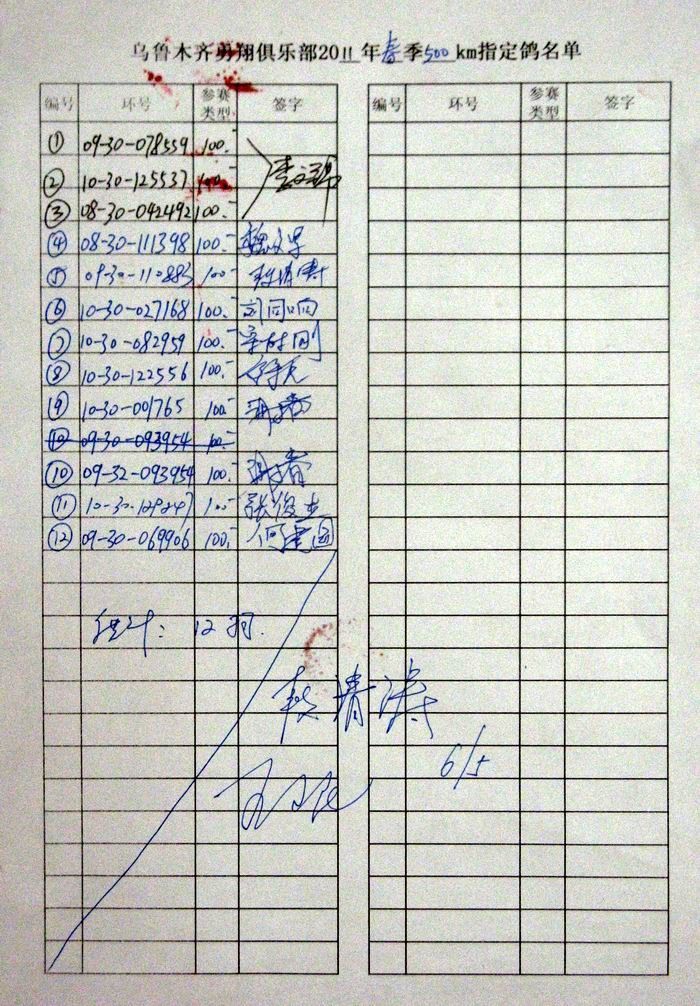 乌鲁木齐勇翔俱乐部2011年春季500km指定鸽名单
编号 环号 参赛类型 签字 编号 环号 参赛类型 签字
① 09-30-078559 100.-
② 10-30-125537 100.-
③ 08-30-042492 100.-
④ 08-30-111398 100.-
⑤ 09-30-110883 100.-
⑥ 10-30-027168 100.- 刘同响
⑦ 10-30-082959 100.-
⑧ 10-30-122556 100.-
⑨ 10-30-001765 100.-
⑩ 09-30-093954 100.-
⑩ 09-32-093954 100.-
⑪ 100.- 张俊杰
⑫ 09-30-069906 100.- 何建国
统计: 12羽.
6/5